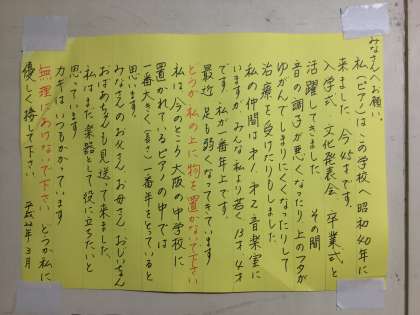 みなさんへお願い。
私(ピアノ)はこの学校へ昭和40年に
来ました。今45才です。
入学式、文化発表会、卒業式と
活躍してきました。その間
音の調子が悪くなったり上のフタが
ゆがんでしまりにくくなったりして
治療を受けたりもしました。
私の仲間は才1、才2音楽室に
いますが、みんな私より若く13才、4才
です。私が一番年上です。
最近足も弱くなってきています
どうか私の上に物を置かないで下さい
私は今のところ大阪の中学校に
置かれているピアノの中では
一番大きく(長さ)一番年をとっていると
思います。
みなさんのお父さん、お母さん、おじいちゃん
おばあちゃんも見送って来ました。
私はまだ楽器として役に立ちたいと
思っています。
カギはいつもかかっています。
無理にあけないで下さい。どうか私に
優しく接して下さい。平成22年3月